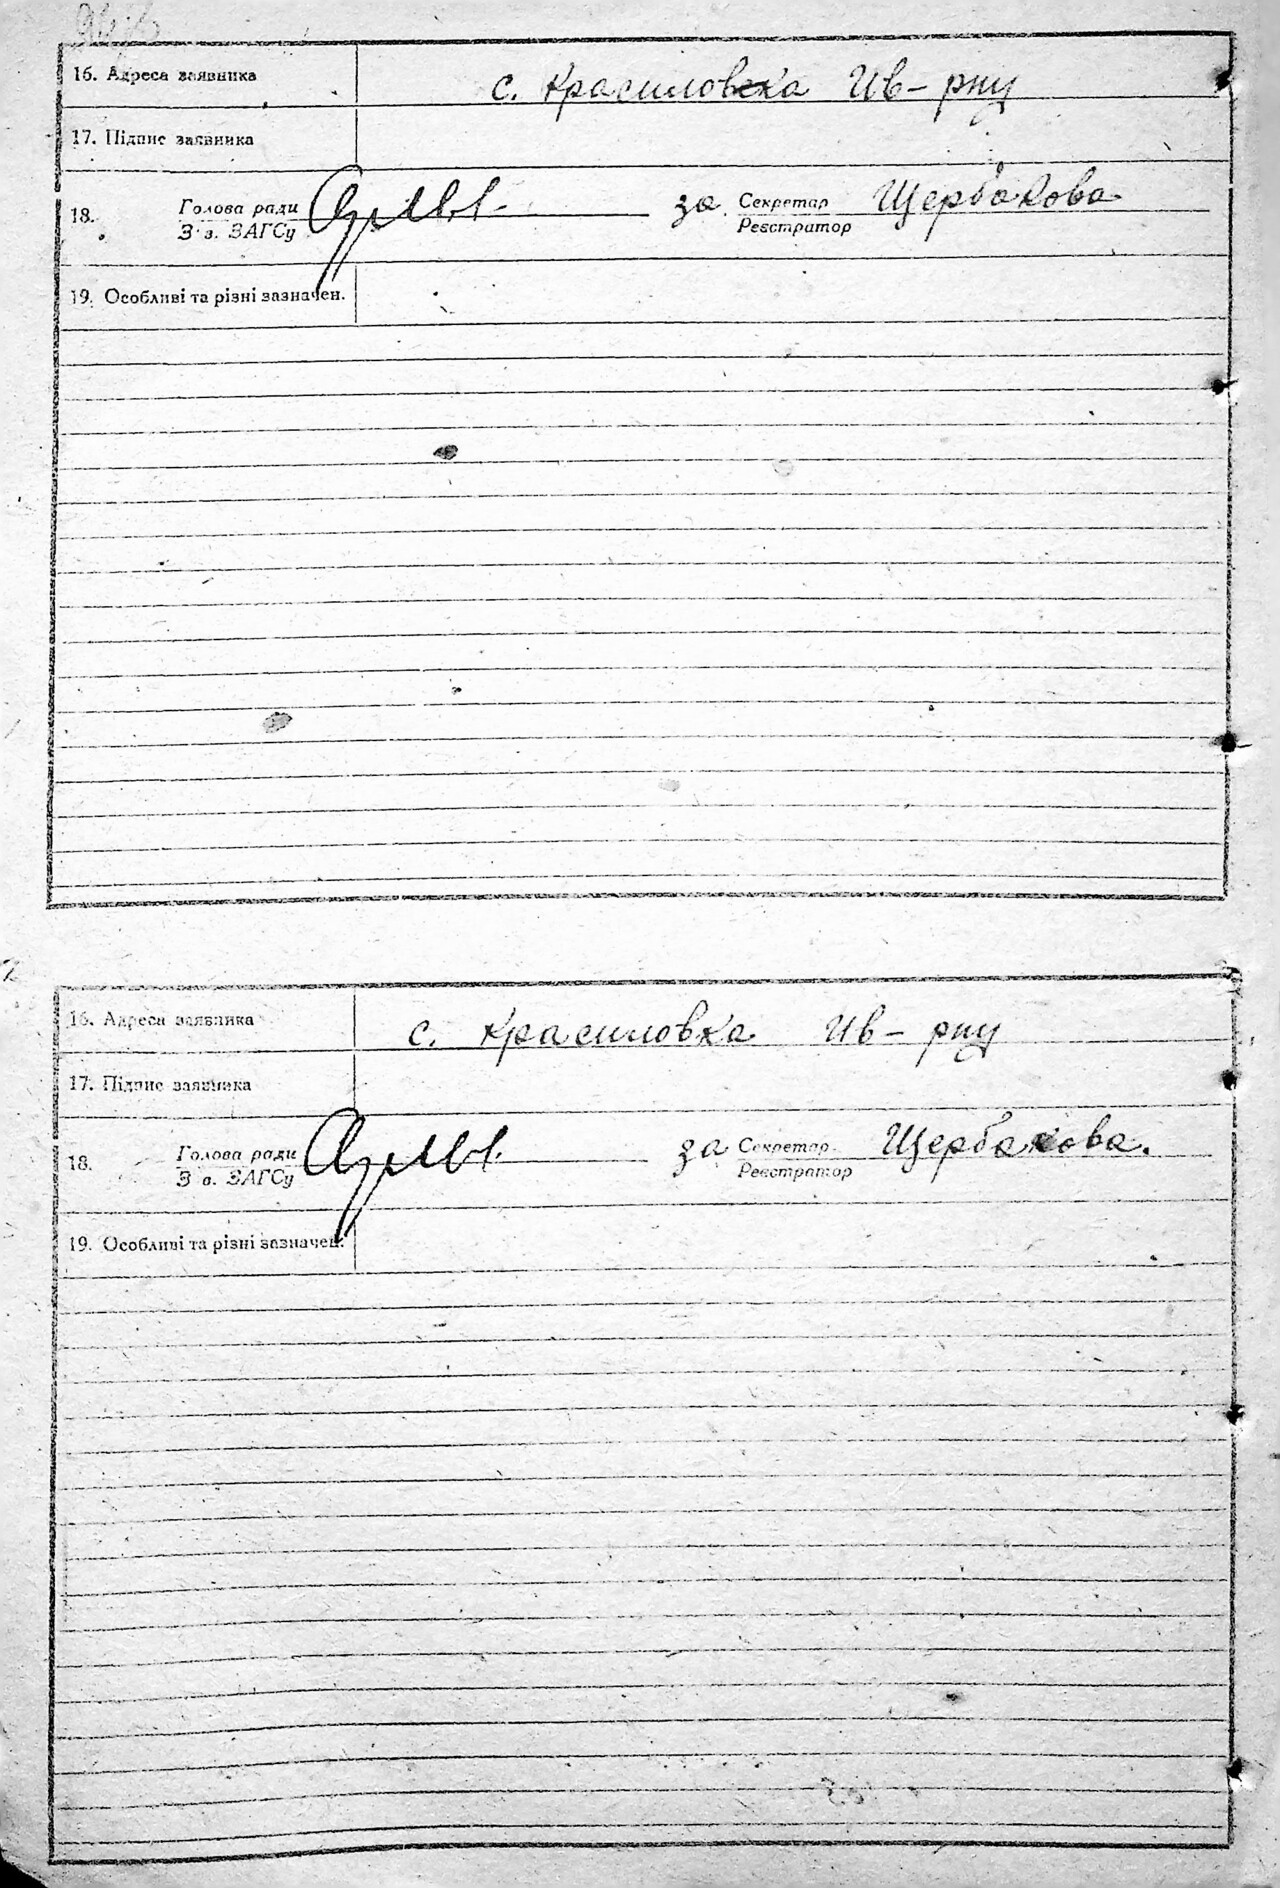 16. Адреса заявника с. Красиловка Ив-рну
17. Підпис заявника
18. Голова ради за Секретар Щербакова
З а. ЗАГСу Реєстратор
19. Особливі та різні зазначен.
16. Адреса заявника с. Красиловка Ив-рну
17. Підпис заявника
18. Голова ради за Секретар Щербакова.
З а. ЗАГСу Реєстратор
19. Особливі та різні зазначен.